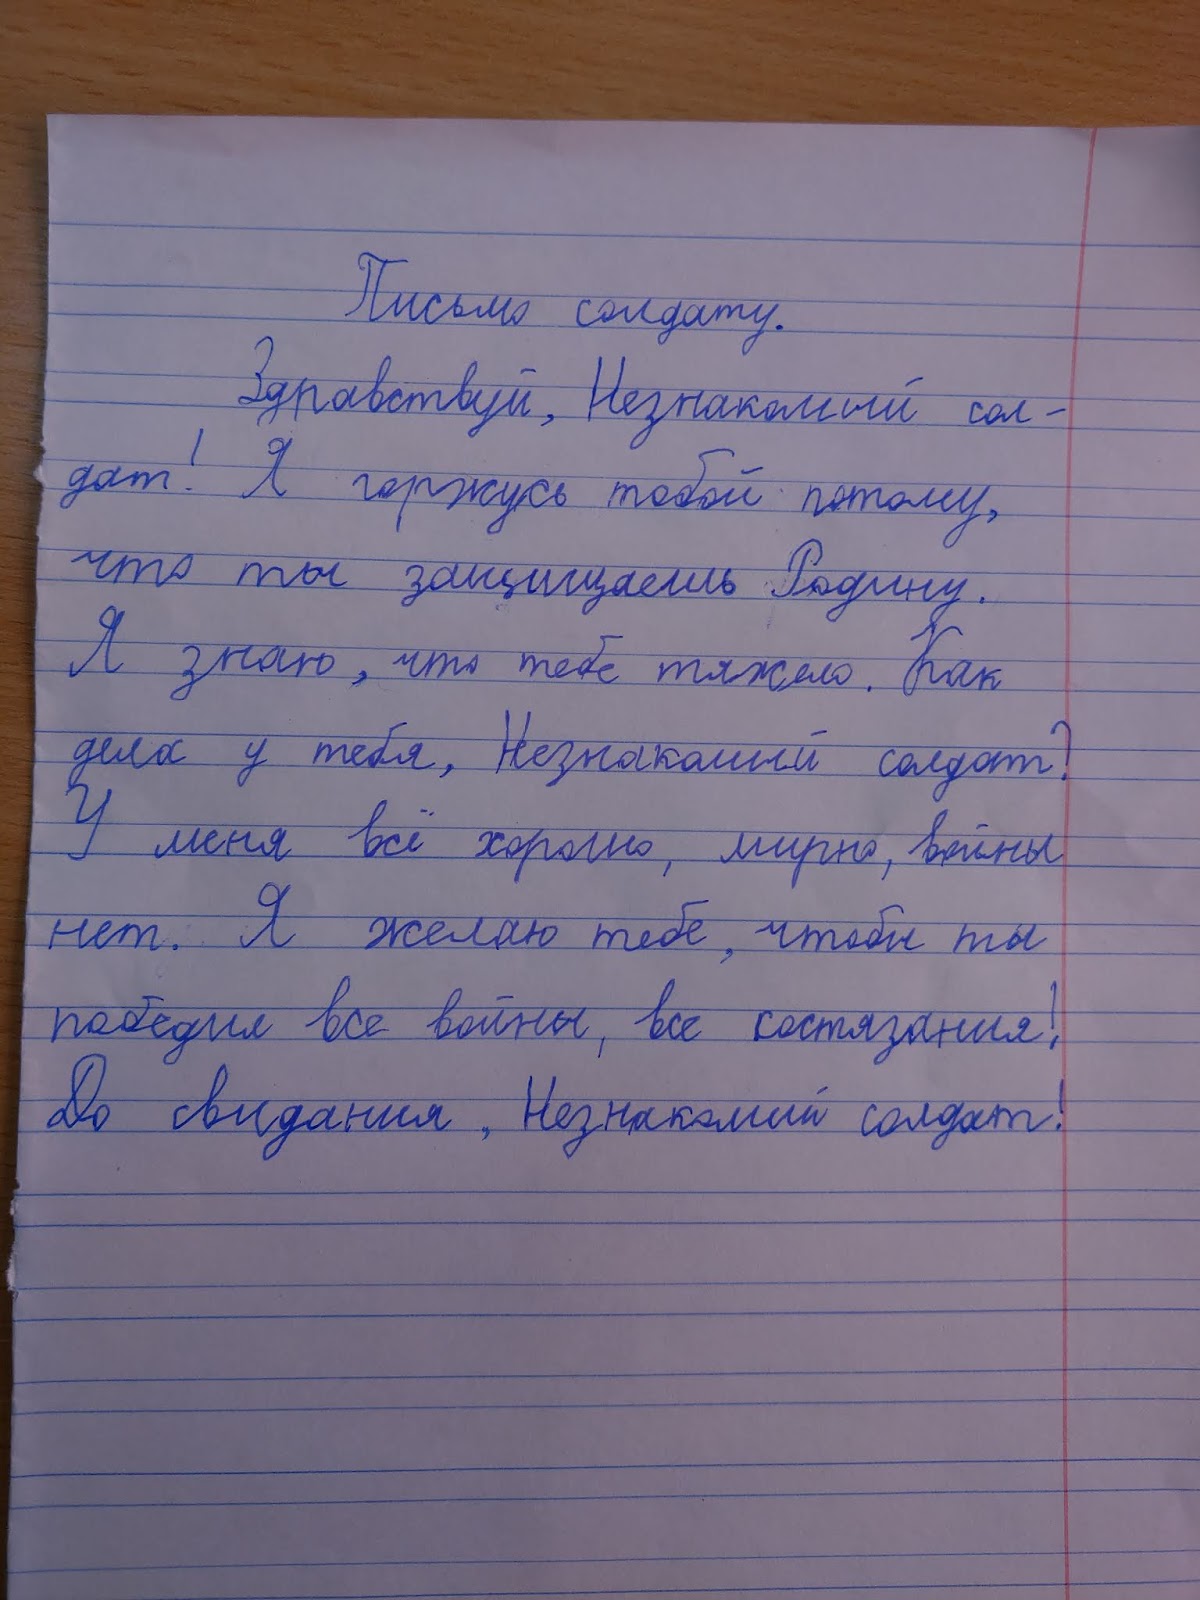 Письмо солдату.
Здравствуй, Незнакомый сол-
дат! Я горжусь тобой потому,
что ты защищаешь Родину.
Я знаю, что тебе тяжело. Как
дела у тебя, Незнакомый солдат?
У меня всё хорошо, мирно, войны
нет. Я желаю тебе, чтобы ты
победил все войны, все состязания!
До свидания, Незнакомый солдат!